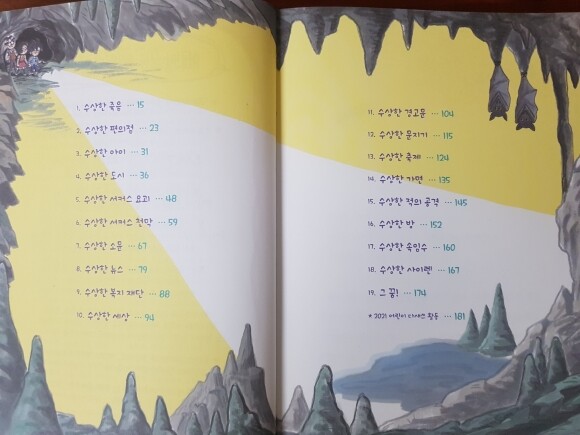 1. 수상한 죽음 … 15
2. 수상한 편의점 … 23
3. 수상한 아이 … 31
4. 수상한 도시 … 36
5. 수상한 서커스 요괴 … 48
6. 수상한 서커스 천막 … 59
7. 수상한 소문 … 67
8. 수상한 뉴스 … 79
9. 수상한 복지 재단 … 88
10. 수상한 세상 … 94
11. 수상한 경고문 … 104
12. 수상한 문지기 … 115
13. 수상한 축제 … 124
14. 수상한 가면 … 135
15. 수상한 적의 공격 … 145
16. 수상한 방 … 152
17. 수상한 속임수 … 160
18. 수상한 사이렌 … 167
19. 그 꿈! … 174
* 2021 어린이 활동 … 181